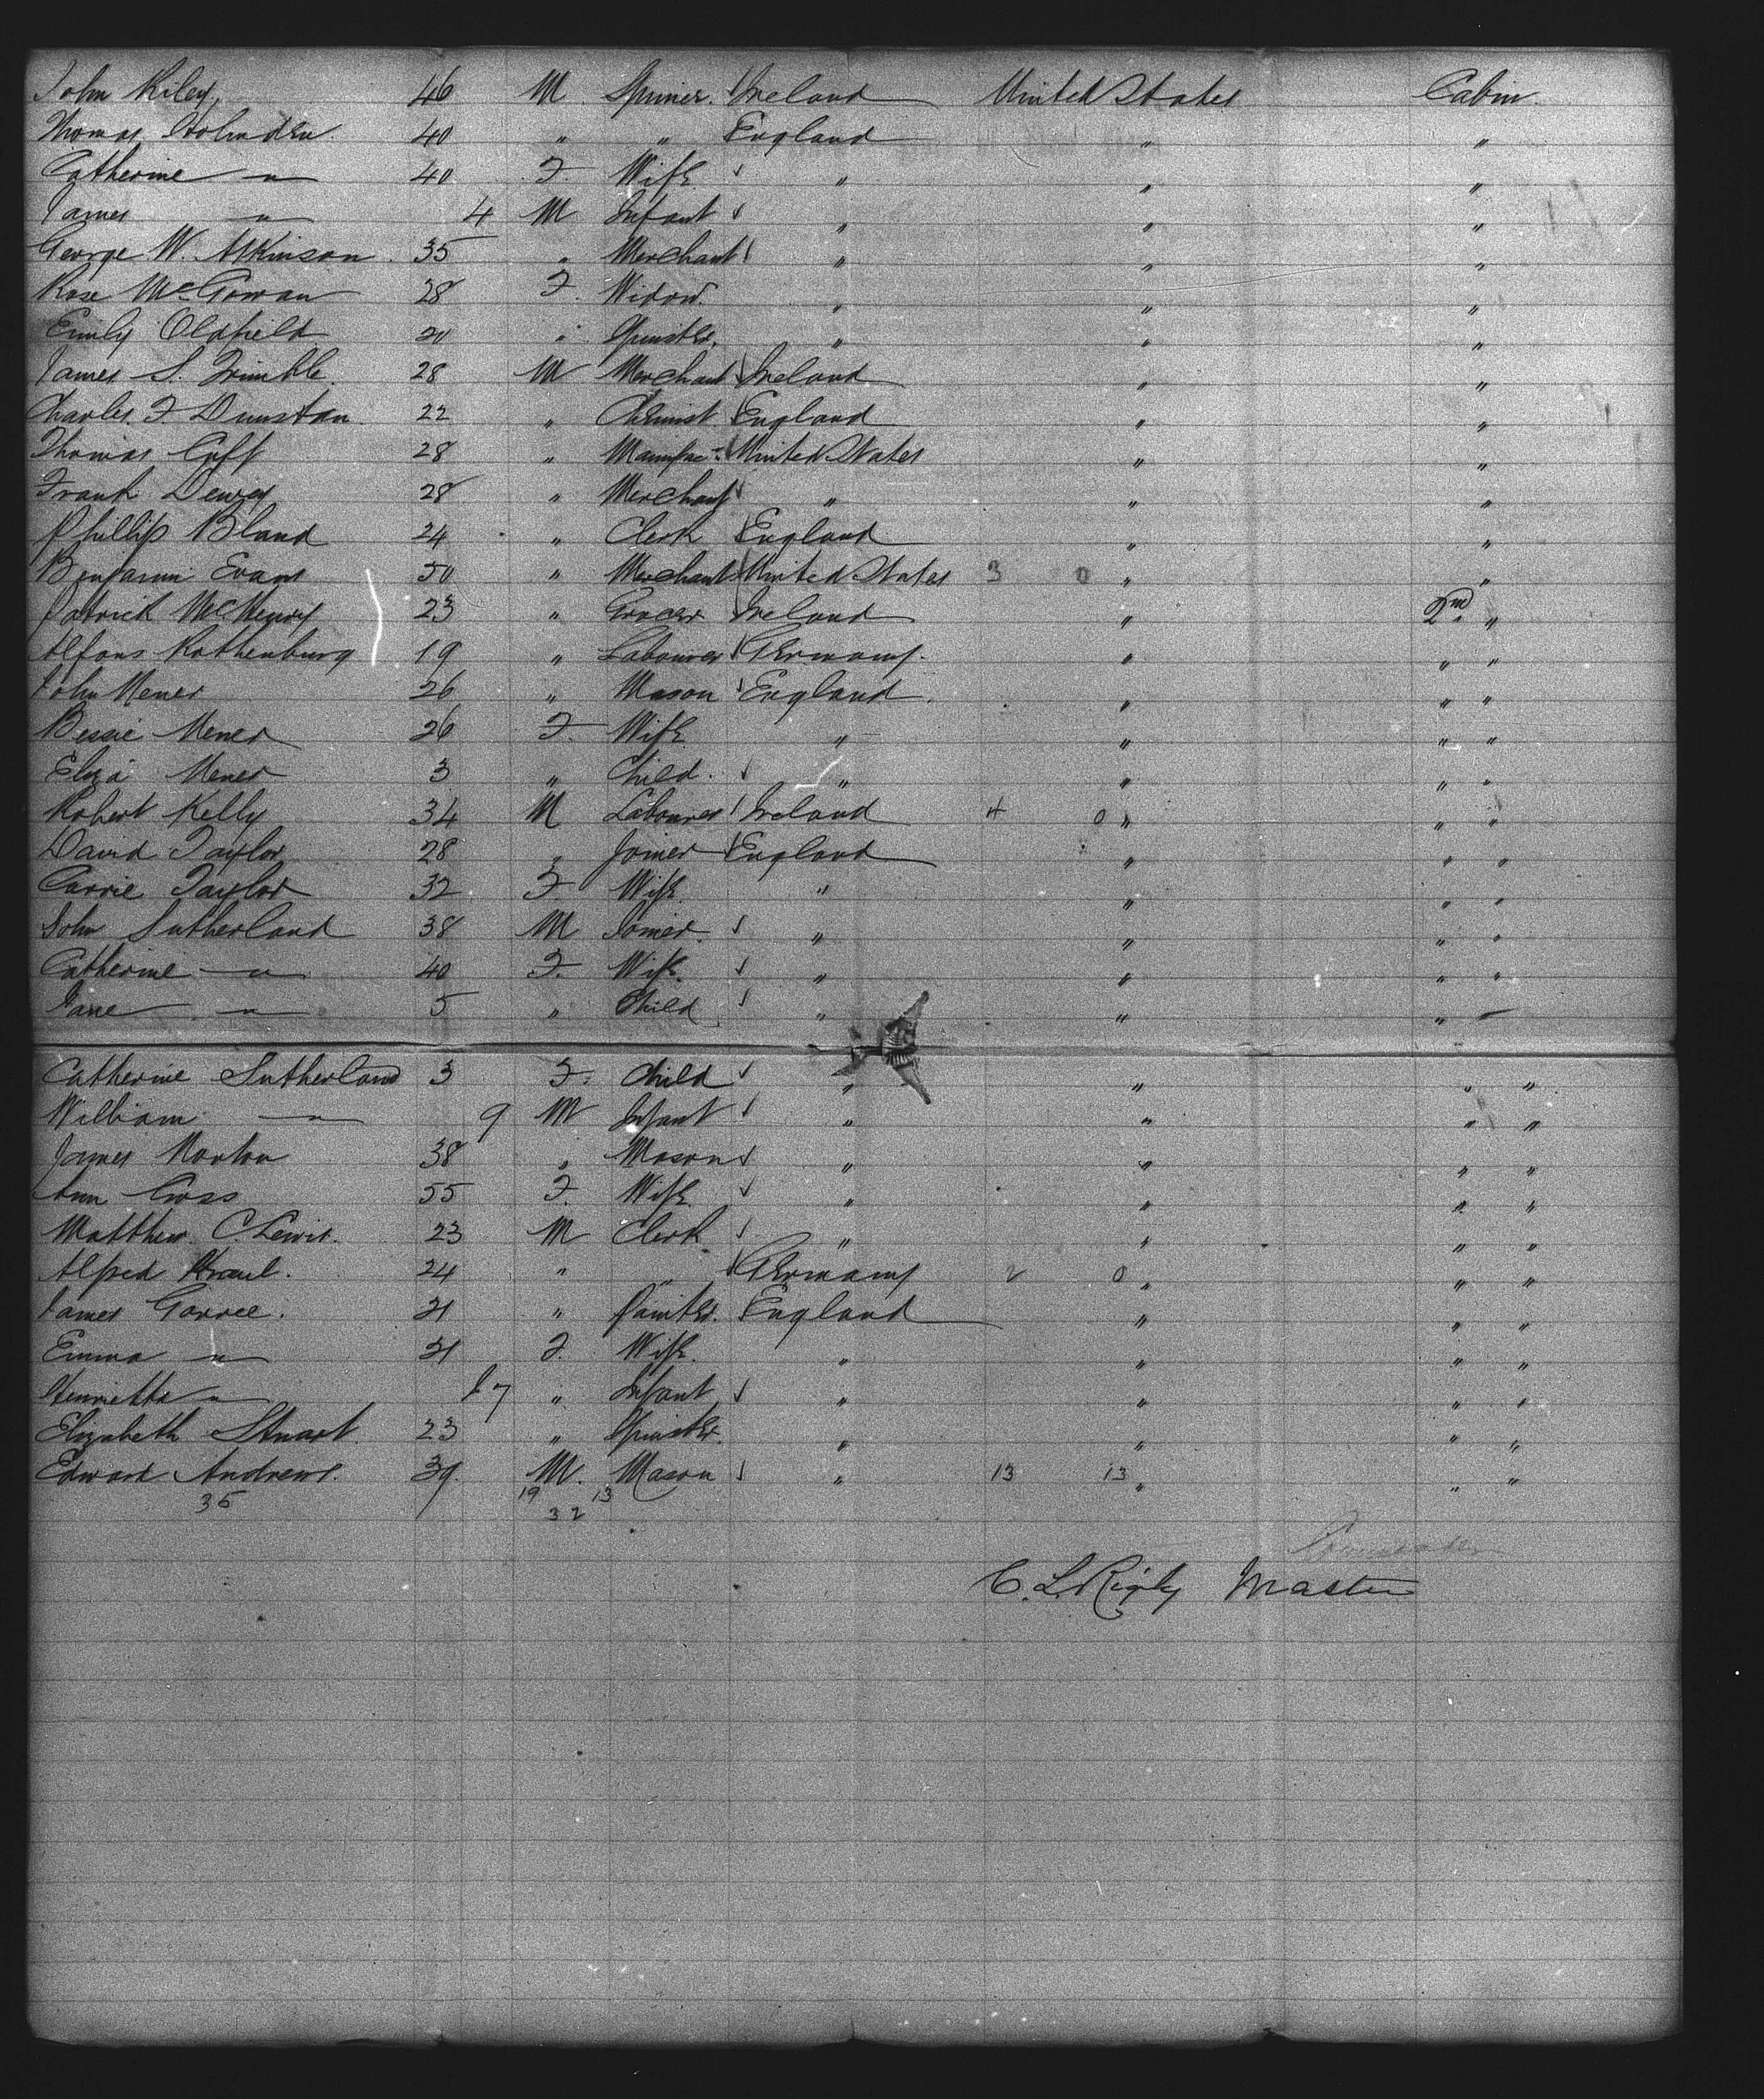 John Riley 46 M Spinner. Ireland United States Cabin
Thomas Holmden 40 " " England " "
Catherine " 40 F. Wife " " "
James " 4 M Infant " " "
George W. Atkinson 35 " Merchant " " "
Rose McGowan 28 F. Widow. " " "
Emily Oldfield 20 " Spinster. " " "
James S. Trimble 28 M Merchant Ireland " "
Charles F Dunstan 22 " Chemist England " "
Thomas Cuft 28 " Manufac- United States " "
Frank Dewey 28 " Merchant " " "
Phillip Bland 24 " Clerk England " "
Benjamin Evans 50 " Merchant United States 3 0 " "
Patrick McHenry 23 " Grocer Ireland " 2nd "
Alfons Rothenburg 19 " Labourer Germany " " "
John Mener 26 " Mason England " " "
Bessie Mener 26 F. Wife " " " "
Eliza Mener 3 " Child. " " " "
Robert Kelly 34 M Labourer Ireland 4 0 " " "
David Taylor 28 " Joiner England " " "
Carrie Taylor 32 F. Wife. " " " "
John Sutherland 38 M Joiner. " " " "
Catherine " 40 F. Wife. " " " "
Jane " 5 " Child " " "
Catherine Sutherland 3 F. Child " " " "
William " 9 M Infant " " " "
James Norton 38 " Mason " " " "
Ann Cross 55 F. Wife " " " "
Matthew C. Lewis. 23 M Clerk " " " "
Alfred 24 " " Germany 2 0 " " "
James Gorree. 21 " Painter. England " " "
Emma " 21 F. Wife. " " " "
Henrietta " 7 " Infant " " " "
Elizabeth Stuart 23 " Spinster. " " " "
Edward Andrews. 39 M. Mason " 13 13 " " "
35 19 13
32
C. L. Rigby Master